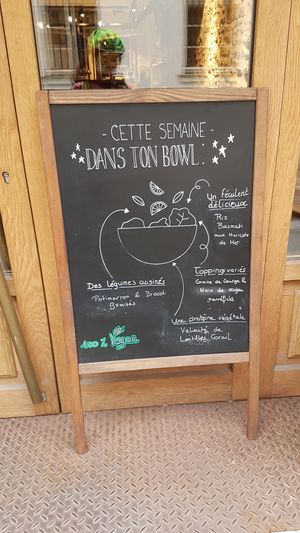 - CETTE SEMAINE -
DANS TON BOWL :
Un féculent
délicieux
Riz
Basmati
aux Haricots
de Mer
Toppings variés
Graine de Courge &
Noix de cajou
torréfiés
Des légumes cuisinés
Potimarron & Brocoli
Braisés
Une protéine végétale
Velouté de
Lentilles Corail
100 % Vegan